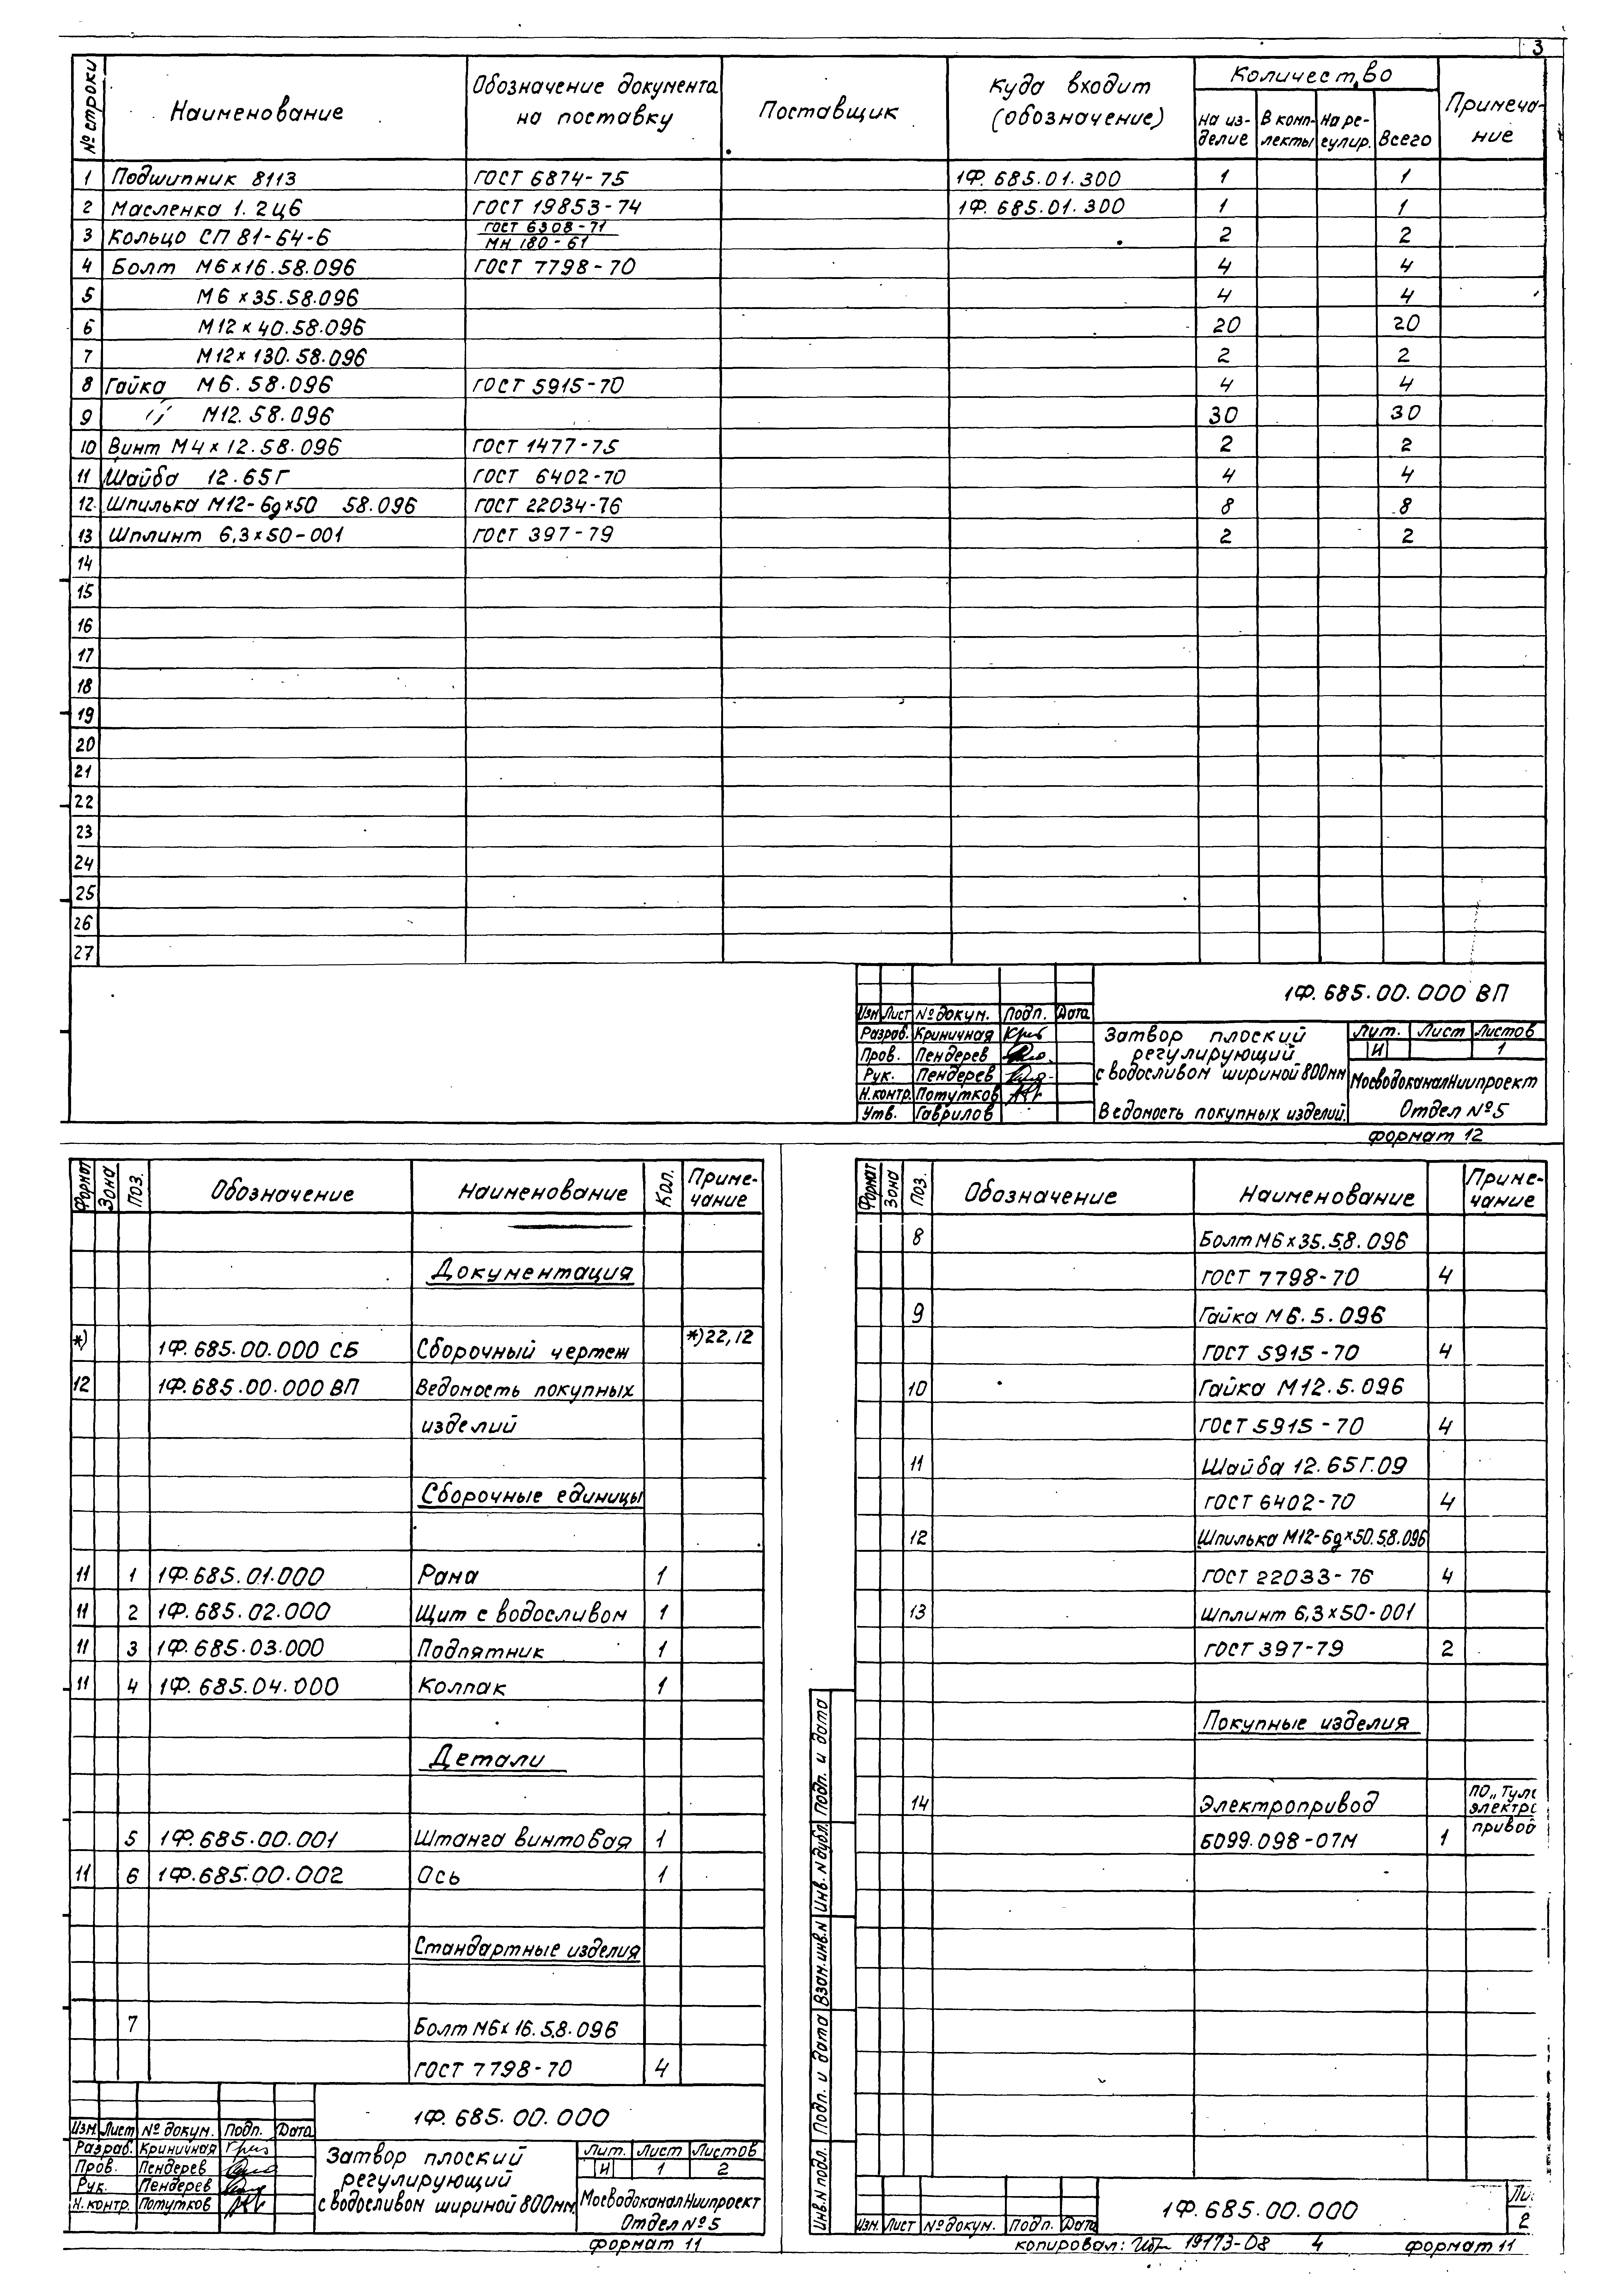 3
№ строки Наименование Обозначение документа на поставку Поставщик Куда входит (обозначение) Количество Примеча-ние
на из-делие В комп-лекты На ре-гулир. Всего
1 Подшипник 8113 ГОСТ 6874-75 1Ф.685.01.300 1 1
2 Масленка 1.2Ц6 ГОСТ 19853-74 1Ф.685.01.300 1 1
3 Кольцо СП 81-64-6 ГОСТ 6308-71 МН 180-61 2 2
4 Болт М6×16.58.096 ГОСТ 7798-70 4 4
5 М6×35.58.096 4 4
6 М12×40.58.096 20 20
7 М12×130.58.096 2 2
8 Гайка М6.58.096 ГОСТ 5915-70 4 4
9 〃 М12.58.096 30 30
10 Винт М4×12.58.096 ГОСТ 1477-75 2 2
11 Шайба 12.65Г ГОСТ 6402-70 4 4
12 Шпилька М12-6g×50 58.096 ГОСТ 22034-76 8 8
13 Шплинт 6,3×50-001 ГОСТ 397-79 2 2
14
15
16
17
18
19
20
21
22
23
24
25
26
27
1Ф.685.00.000 ВП
Изм Лист № докум. Подп. Дата
Разраб. Криничная
Пров. Пендерев
Рук. Пендерев
Н.контр. Потутков
Утв. Гаврилов
Затвор плоский
регулирующий
с водосливом шириной 800мм
Ведомость покупных изделий.
Лит. Лист Листов
И 1
МосводоканалНиипроект
Отдел №5
формат 12
Формат Зона Поз. Обозначение Наименование Кол. Приме-чание
Документация
*) 1Ф.685.00.000 СБ Сборочный чертеж *)22,12
12 1Ф.685.00.000 ВП Ведомость покупных
изделий
Сборочные единицы
11 1 1Ф.685.01.000 Рама 1
11 2 1Ф.685.02.000 Щит с водосливом 1
11 3 1Ф.685.03.000 Подпятник 1
11 4 1Ф.685.04.000 Колпак 1
Детали
5 1Ф.685.00.001 Штанга винтовая 1
11 6 1Ф.685.00.002 Ось 1
Стандартные изделия
7 Болт М6×16.5.8.096
ГОСТ 7798-70 4
1Ф.685.00.000
Изм Лист № докум. Подп. Дата
Разраб. Криничная
Пров. Пендерев
Рук. Пендерев
Н.контр. Потутков
Затвор плоский
регулирующий
с водосливом шириной 800мм.
Лит. Лист Листов
И 1 2
МосводоканалНиипроект
Отдел №5
формат 11
Формат Зона Поз. Обозначение Наименование Приме-чание
8 Болт М6×35.5.8.096
ГОСТ 7798-70 4
9 Гайка М6.5.096
ГОСТ 5915-70 4
10 Гайка М12.5.096
ГОСТ 5915-70 4
11 Шайба 12.65Г.09
ГОСТ 6402-70 4
12 Шпилька М12-6g×50.5.8.096
ГОСТ 22033-76 4
13 Шплинт 6,3×50-001
ГОСТ 397-79 2
Покупные изделия
14 Электропривод ПО „Тул электро
Б099.098-07М 1 привод
Инв.N подл. Подп. и дата Взам.инв.N Инв.N дубл. Подп. и дата
Изм. Лист № докум. Подп. Дата
1Ф.685.00.000
Ли
2
копировал: 19173-08 4 формат 11